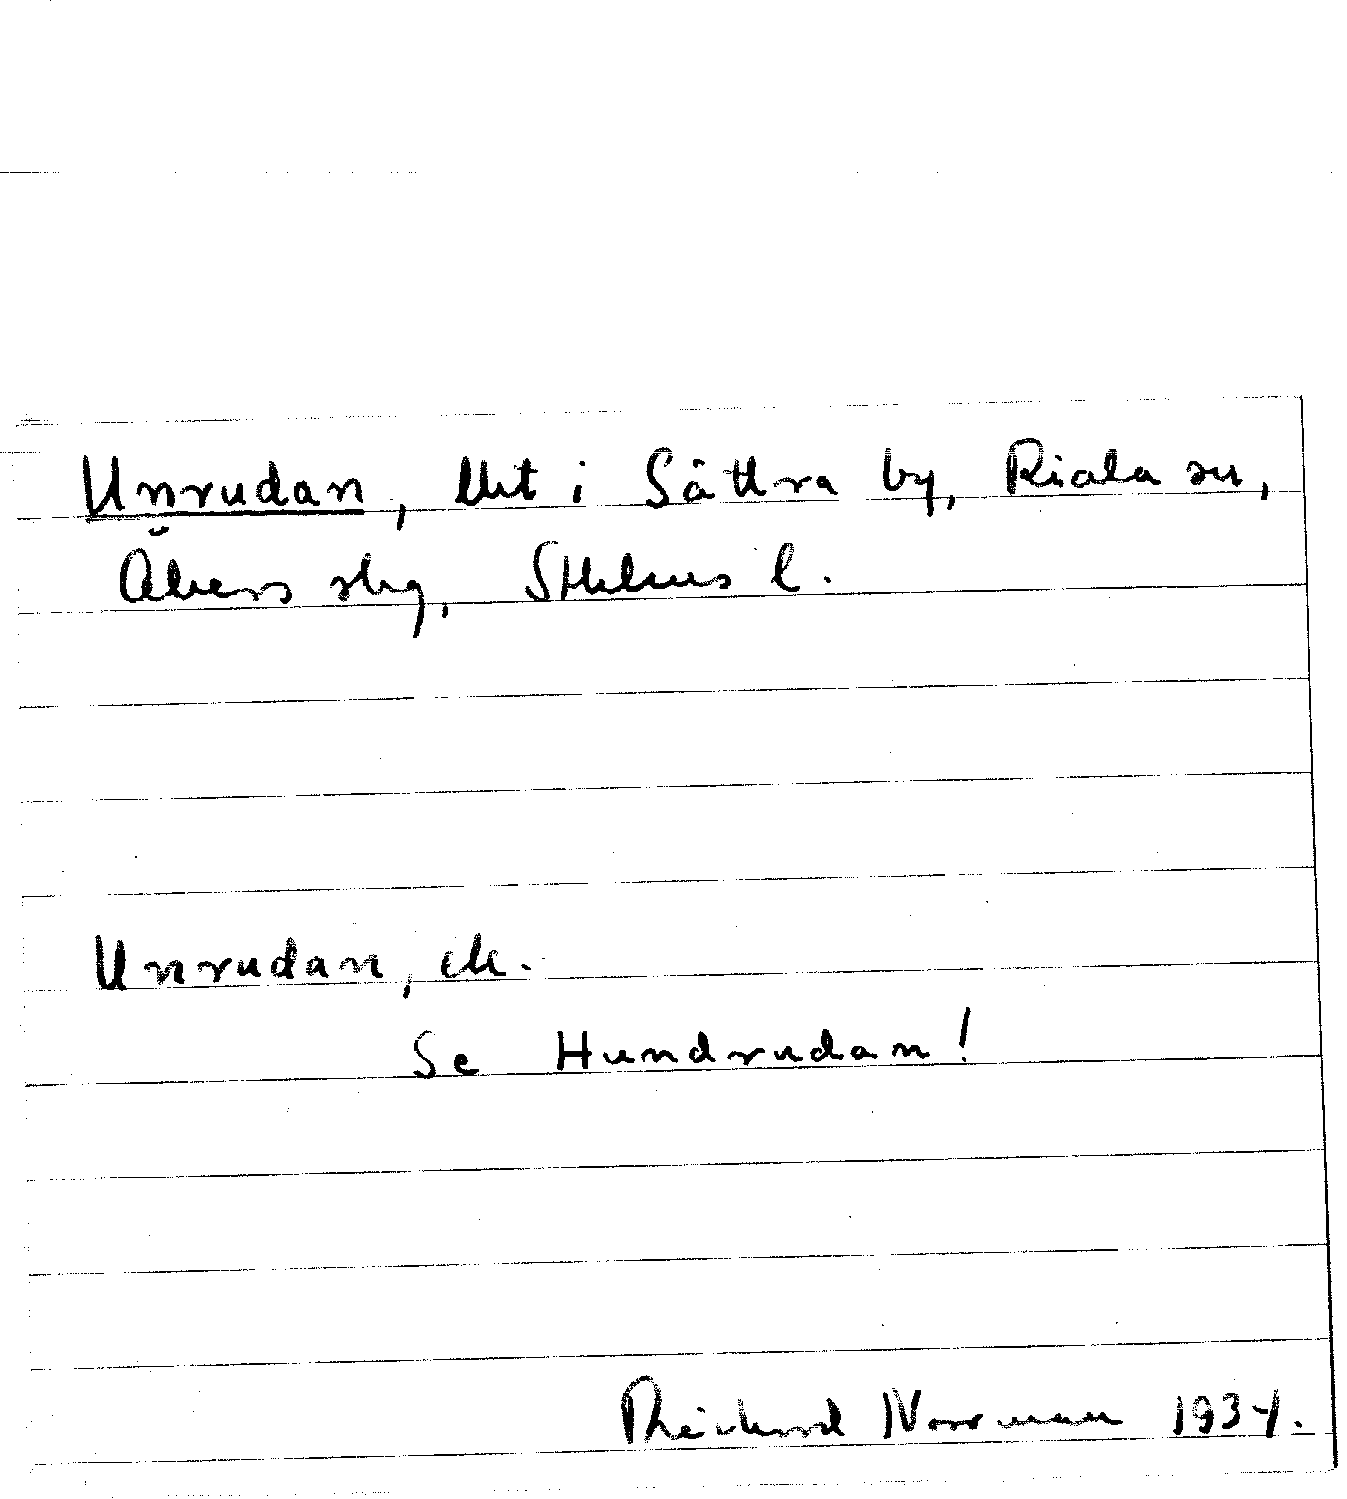 Unrudan, Urt i Sättra by, Riala sn,
Åkers skg, Sthlms l.
Unrudan, ek.
Se Hundrudan!
Richard Norrman 1934.